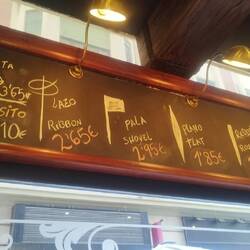 TA
3'65€
SITO
10€
LAZO
RIBBON
2'65€
PALA
SHOVEL
2'95€
PLANO
FLAT
1'85€